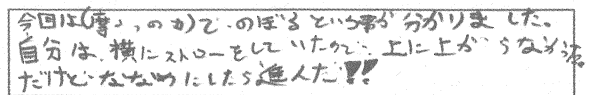 今回は(摩さつの力)で、のぼるという事が分かりました。
自分は、横にストローをしていたので、上に上がらなかった。
だけど、ななめにしたら進んだ!!